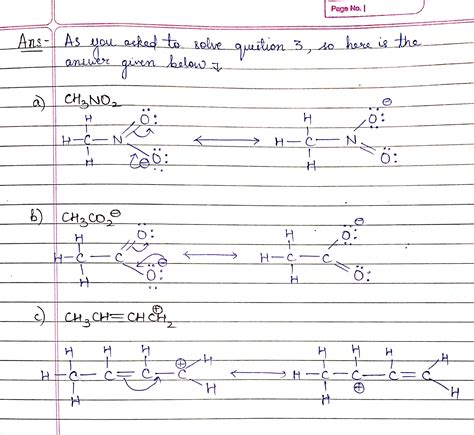 Page No. |
Ans:- As you asked to solve question 3, so here is the
answer given below ↴
a) CH₃NO₂
H Ö: ⊖
H Ö:
H–C–N ⟷ H–C–N
H ⊖Ö: H Ö:
b) CH₃CO₂⊖
H Ö: H Ö:⊖
H–C–C ⟷ H–C–C
H Ö:⊖ H Ö:
c) CH₃CH=CHC⊕H₂
H H H ⊕ H H H H H
H–C–C=C–C ⟷ H–C–C–C=C
H H H ⊕ H